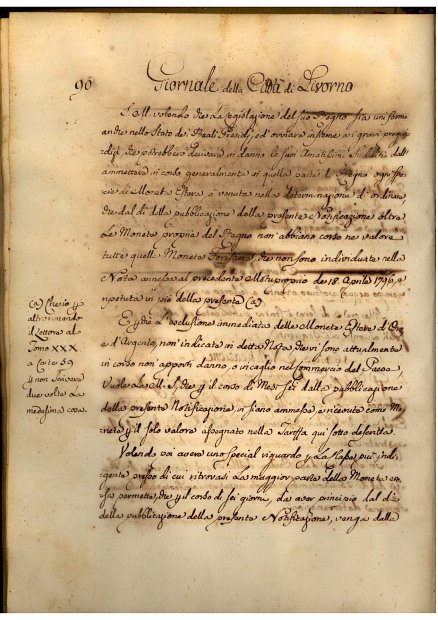 96 Giornale della Città di Livorno
S. M. volendo che la Legislazione del suo Regno sia uniforme
anche nello Stato dei Reali Presidj, ed ovviare insieme ai gravi pregiu
dizj, che potrebbero derivare in danno de suoi Amatissimi Sudditi dall'
ammettersi in corso generalmente in quella parte di Regno ogni spe
cie di Monete Estere è venuta nella determinazione d'ordinare
che dal dì della pubblicazione della presente Notificazione oltre
Le Monete proprie del Regno non abbiano corso ne valore
tutte quelle Monete Forestiere, che non sono individuate nella
Nota annessa al precedente Motuproprio de 18. Aprile 179
riportata in piè della presente (a)
E perchè l'esclusione immediata delle Monete Estere d'Oro
e d'Argento, non indicate in detta Nota che vi sono attualmente
in corso non apporti danno, o incaglio nel Commercio del Paese
Vuole la M. S. che per il corso di Mesi sei dalla pubblicazione
della presente Notificazione, vi siano ammesse, e ricevute come Mo
neta per il solo valore assegnato nella Tariffa qui sotto descritta.
Volendo pa avere uno special riguardo per la Classe più indi
gente presso di cui ritrovasi la maggior parte della Moneta
permette, che per il corso di sei giorni, da aver principio dal dì
della pubblicazione della presente Notificazione, venga dalla
(a) Che io per
altro rimando
il Lettore al
Tomo XXX
a Carte 59
per non scrivere
due volte la
medesima cosa.